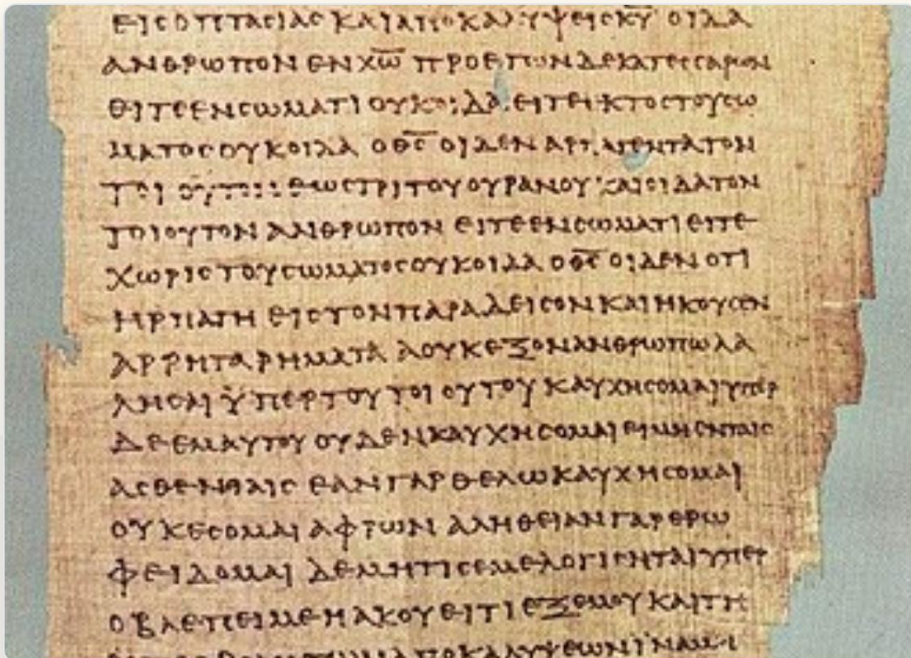 ΕΙСΟΠΤΑСΙΑСΚΑΙΑΠΟΚΑΛΥΨΕΙСΚ̅Υ̅ ΟΙΔΑ
ΑΝΘΡΩΠΟΝ ΕΝ Χ̅Ω̅ ΠΡΟΕΤΩΝΔΕΚΑΤΕССΑΡΩΝ
ΕΙΤΕΕΝСΩΜΑΤΙ ΟΥΚΟΙΔΑ ΕΙΤΕΕΚΤΟСΤΟΥСΩ
ΜΑΤΟСΟΥΚΟΙΔΑ ΟΘ̅С̅ ΟΙΔΕΝ ΑΡΠΑΓΕΝΤΑΤΟΝ
ΤΟΙΟΥΤΟΝ ΕΩСΤΡΙΤΟΥΟΥΡΑΝΟΥ ΚΑΙΟΙΔΑΤΟΝ
ΤΟΙΟΥΤΟΝ ΑΝΘΡΩΠΟΝ ΕΙΤΕΕΝСΩΜΑΤΙΕΙΤΕ
ΧΩΡΙСΤΟΥСΩΜΑΤΟСΟΥΚΟΙΔΑ ΟΘ̅С̅ ΟΙΔΕΝ ΟΤΙ
ΗΡΠΑΓΗ ΕΙСΤΟΝΠΑΡΑΔΕΙСΟΝΚΑΙΗΚΟΥСΕΝ
ΑΡΡΗΤΑΡΗΜΑΤΑ ΑΟΥΚΕΞΟΝΑΝΘΡΩΠΩΛΑ
ΛΗСΑΙ ΫΠΕΡΤΟΥΤΟΙΟΥΤΟΥ ΚΑΥΧΗСΟΜΑΙΥΠΕΡ
ΔΕΕΜΑΥΤΟΥ ΟΥΔΕΝΚΑΥΧΗСΟΜΑΙΕΙΜΗΕΝΤΑΙС
ΑСΘΕΝΕΙΑΙС ΕΑΝΓΑΡΘΕΛΩΚΑΥΧΗСΟΜΑΙ
ΟΥΚΕСΟΜΑΙ ΑΦΡΩΝ ΑΛΗΘΕΙΑΝΓΑΡΕΡΩ
ΦΕΙΔΟΜΑΙ ΔΕΜΗΤΙСΕΜΕΛΟΓΙСΗΤΑΙΥΠΕΡ
ΟΒΛΕΠΕΙΜΕΗΑΚΟΥΕΙΤΙΕΞΕΜΟΥΚΑΙΤΗ
ΑΠΟΚΑΛΥΨΕΩΝΙΝΑΜ